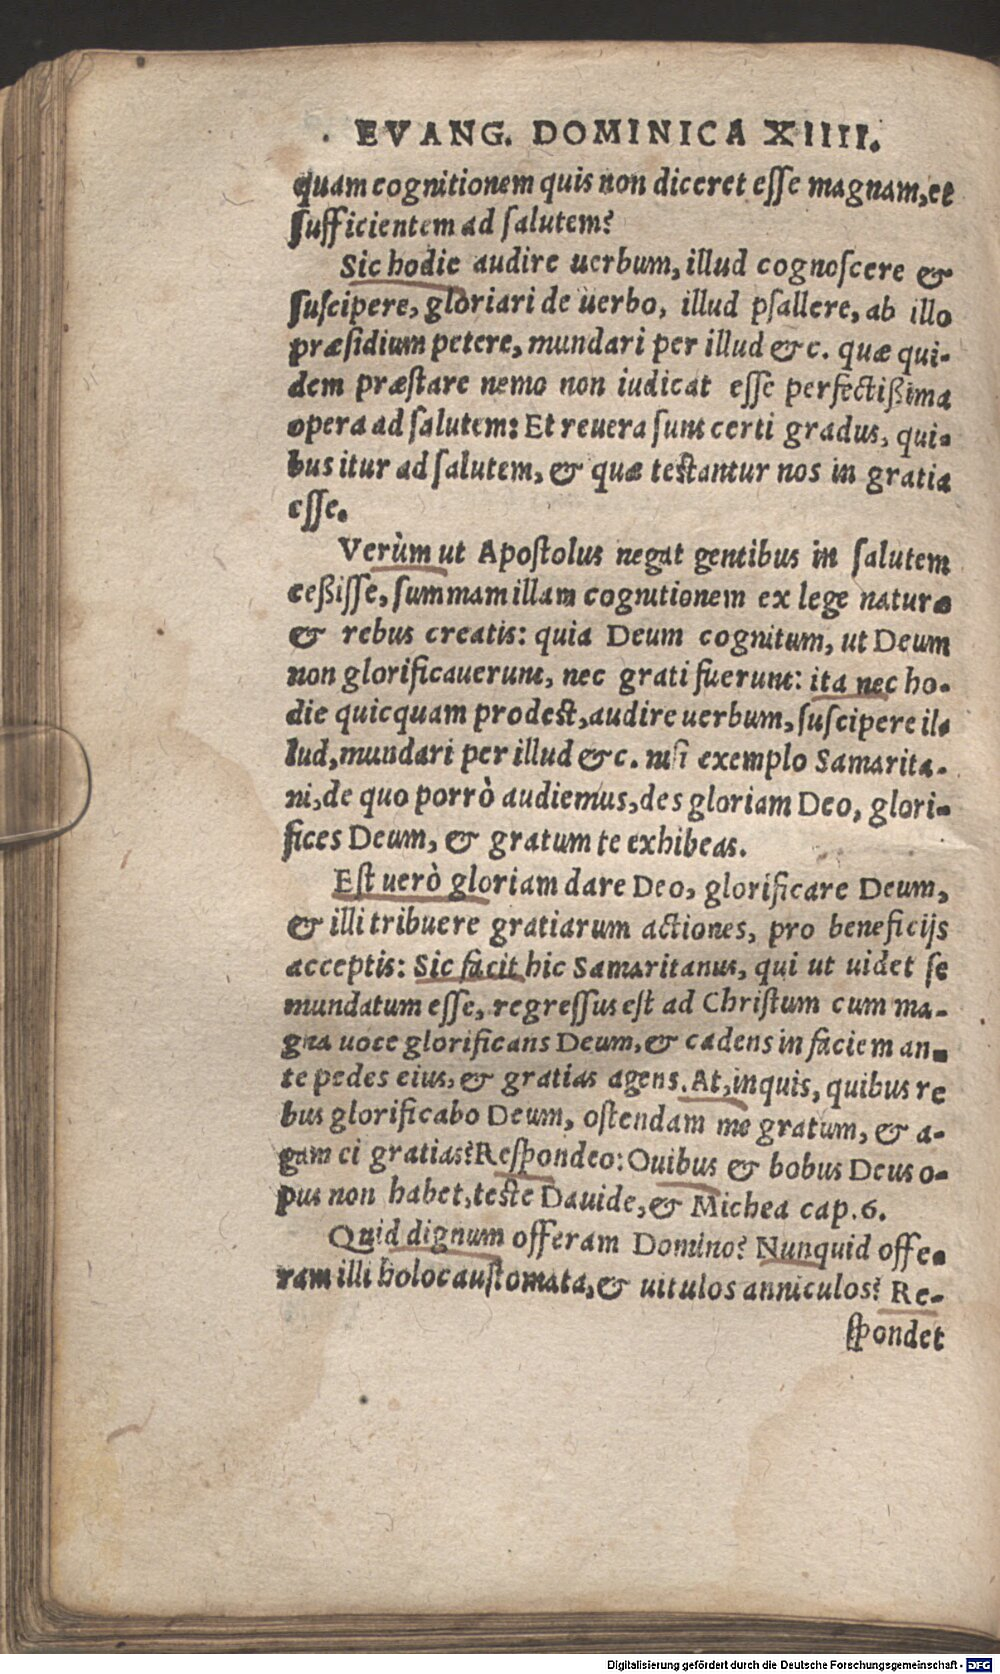 EVANG. DOMINICA XIIII.
quam cognitionem quis non diceret eſſe magnam, et
ſufficientem ad ſalutem?
Sic hodie audire uerbum, illud cognoſcere &
ſuſcipere, gloriari de uerbo, illud pſallere, ab illo
præſidium petere, mundari per illud &c. quæ qui-
dem præſtare nemo non iudicat eſſe perfectißima
opera ad ſalutem: Et reuera ſunt certi gradus, qui-
bus itur ad ſalutem, & quæ teſtantur nos in gratia
eſſe.
Verùm ut Apoſtolus negat gentibus in ſalutem
ceßiſſe, ſummam illam cognitionem ex lege naturæ
& rebus creatis: quia Deum cognitum, ut Deum
non glorificauerunt, nec grati fuerunt: ita nec ho-
die quicquam prodeſt, audire uerbum, ſuſcipere il-
lud, mundari per illud &c. niſi exemplo Samarita-
ni, de quo porrò audiemus, des gloriam Deo, glori-
fices Deum, & gratum te exhibeas.
Eſt uerò gloriam dare Deo, glorificare Deum,
& illi tribuere gratiarum actiones, pro beneficijs
acceptis: Sic facit hic Samaritanus, qui ut uidet ſe
mundatum eſſe, regreſſus eſt ad Chriſtum cum ma-
gna uoce glorificans Deum, & cadens in faciem an-
te pedes eius, & gratias agens. At, inquis, quibus re
bus glorificabo Deum, oſtendam me gratum, & a-
gam ei gratias? Reſpondeo: Ouibus & bobus Deus o-
pus non habet, teſte Dauide, & Michea cap. 6.
Quid dignum offeram Domino? Nunquid offe-
ram illi holocauſtomata, & uitulos anniculos? Re-
ſpondet
Digitalisierung gefördert durch die Deutsche Forschungsgemeinschaft - DFG